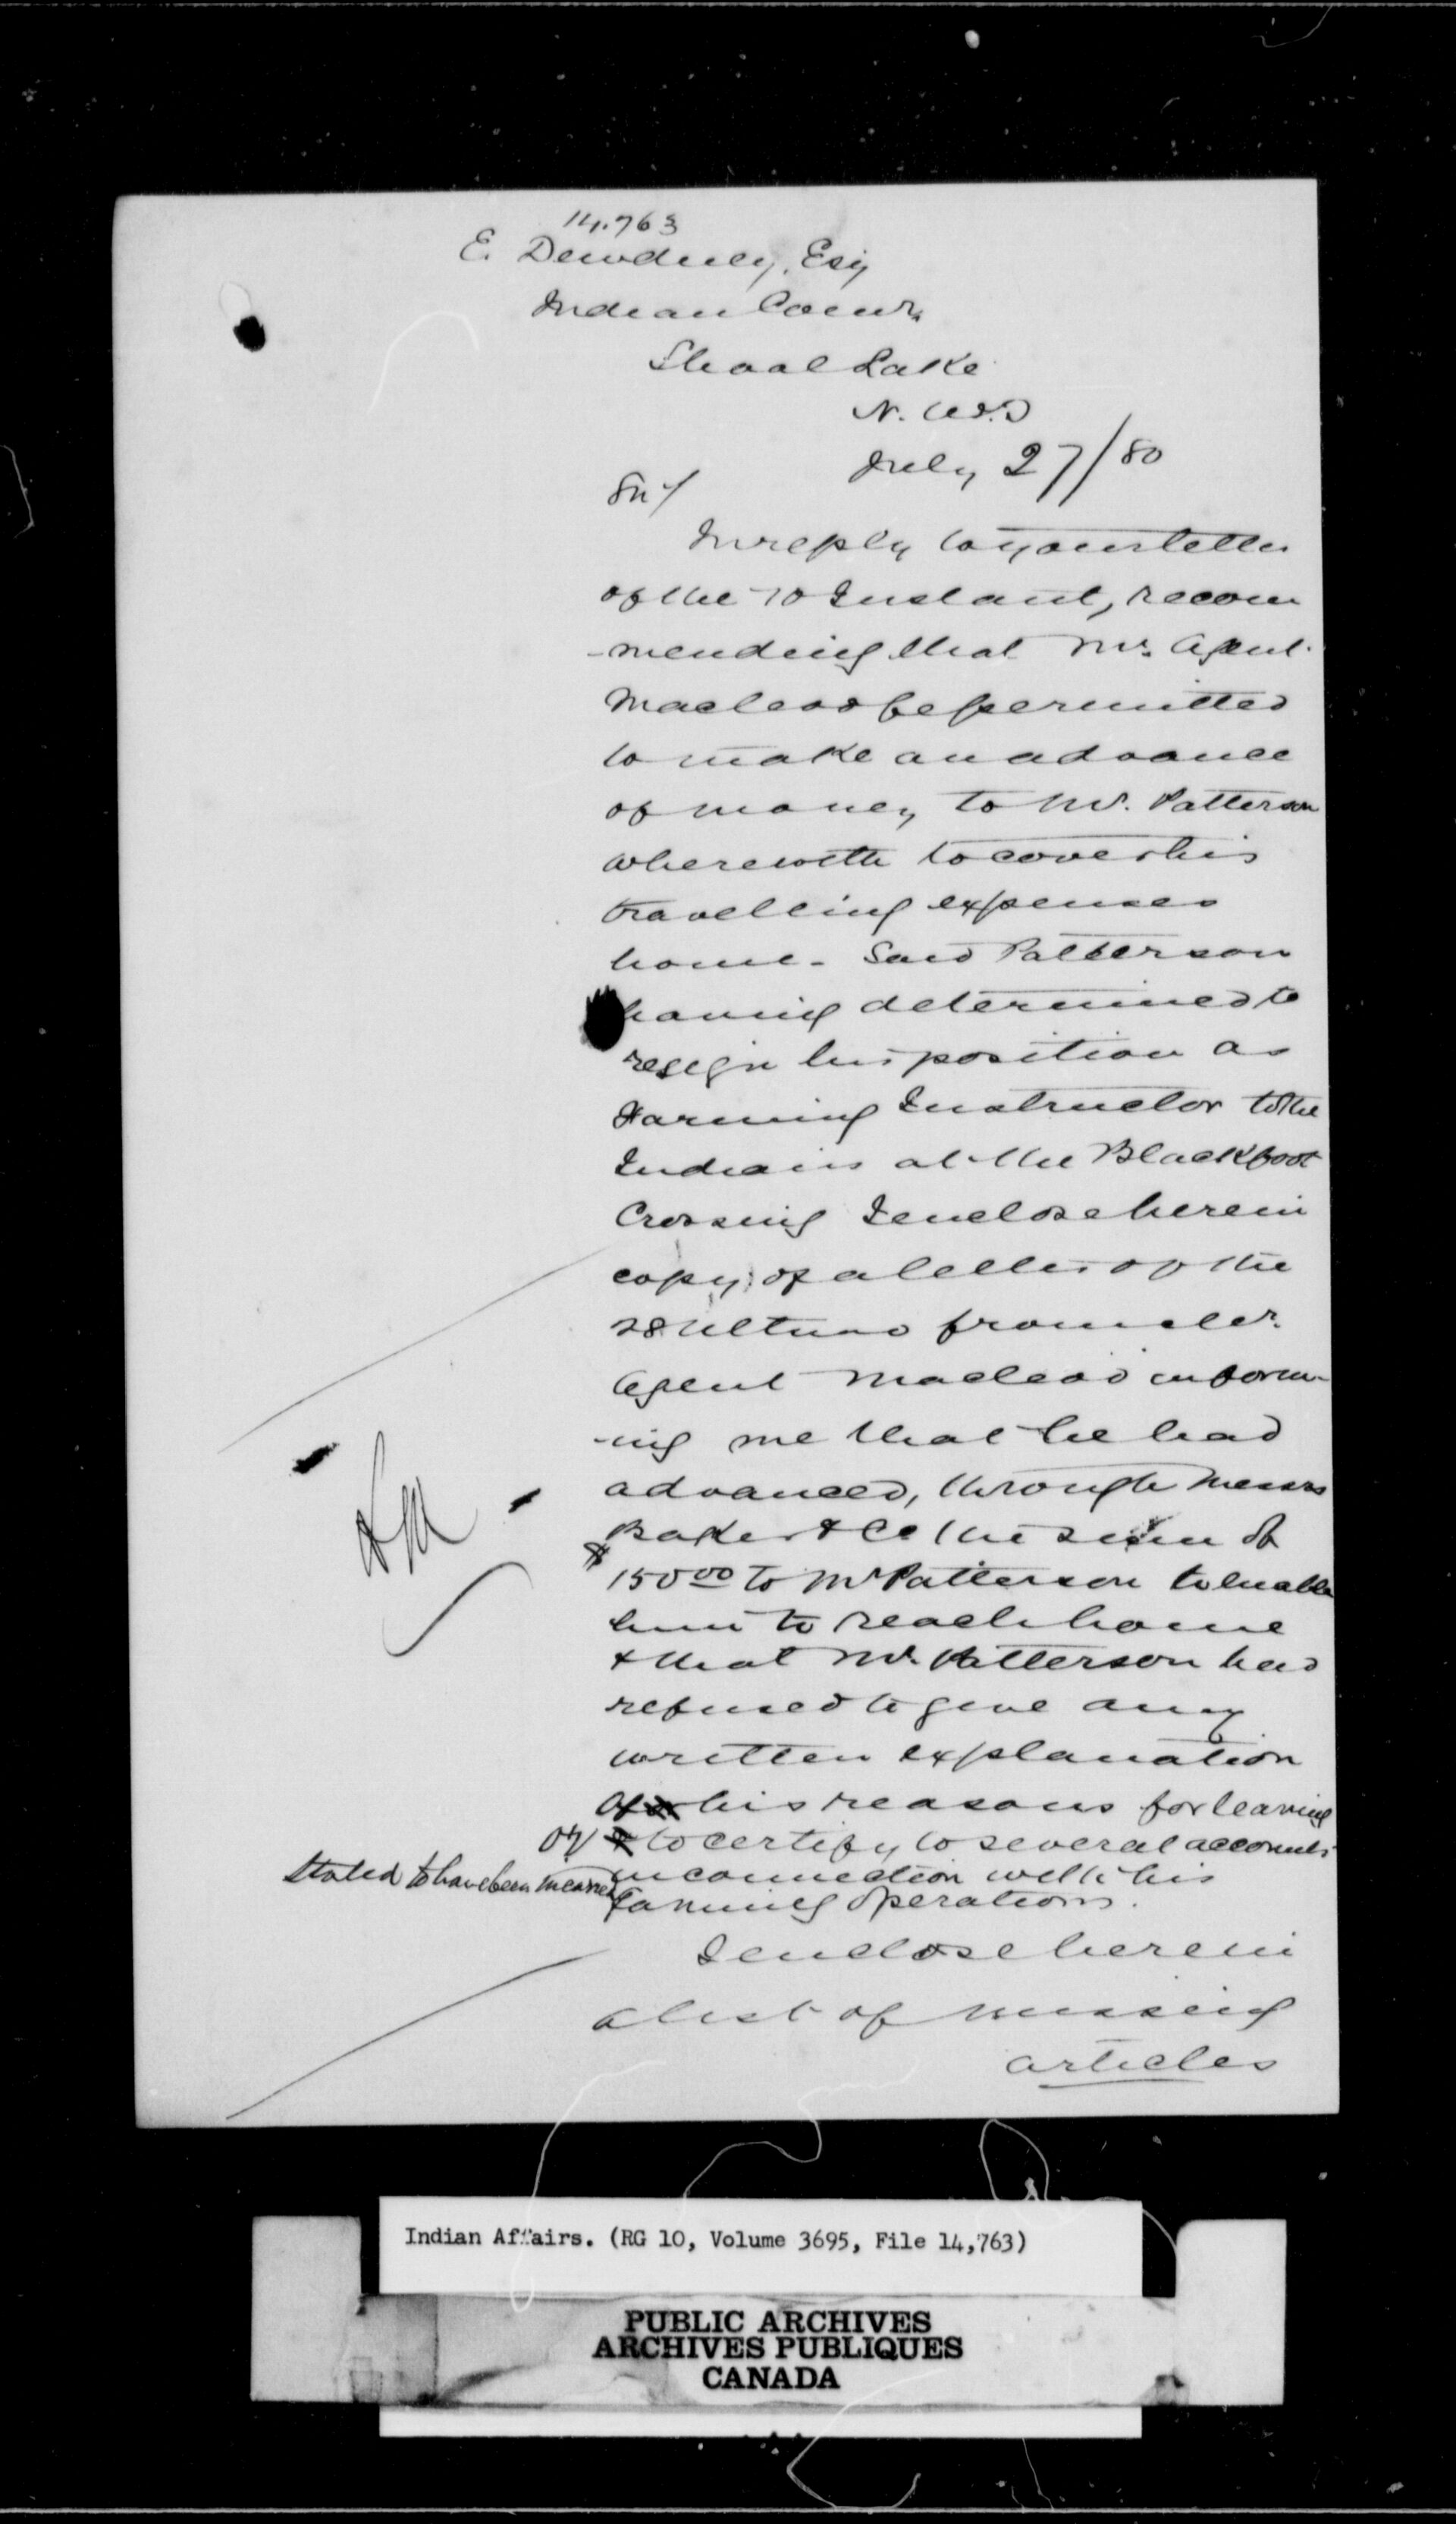 14.763
E. Dewdney, Esq
Indian Comr.
Shoal Lake
N.W.T
July 27/80
Sir/
In reply to your letter
of the 10 Instant, recom
-mending that Mr. Agent
Macleod be permitted
to make an advance
of money to Mr. Patterson
wherewith to cover his
travelling expenses
home - Said Patterson
having determined to
resign his position as
Farming Instructor to the
Indians at the Blackfoot
Crossing I enclose herein
copy of a letter of the
28 Ultimo from Mr.
Agent Macleod inform-
-ing me that he had
advanced, through Messrs
Baker & Co the sum of
$150.00 to Mr Patterson to enable
him to reach home
& that Mr. Patterson had
refused to give any
written explanation
of his reasons for leaving
or to certify to several accounts
stated to have been incurred in connection with his
farming operations.
I enclose herein
a list of missing
articles
Indian Affairs. (RG 10, Volume 3695, File 14,763)
PUBLIC ARCHIVES
ARCHIVES PUBLIQUES
CANADA